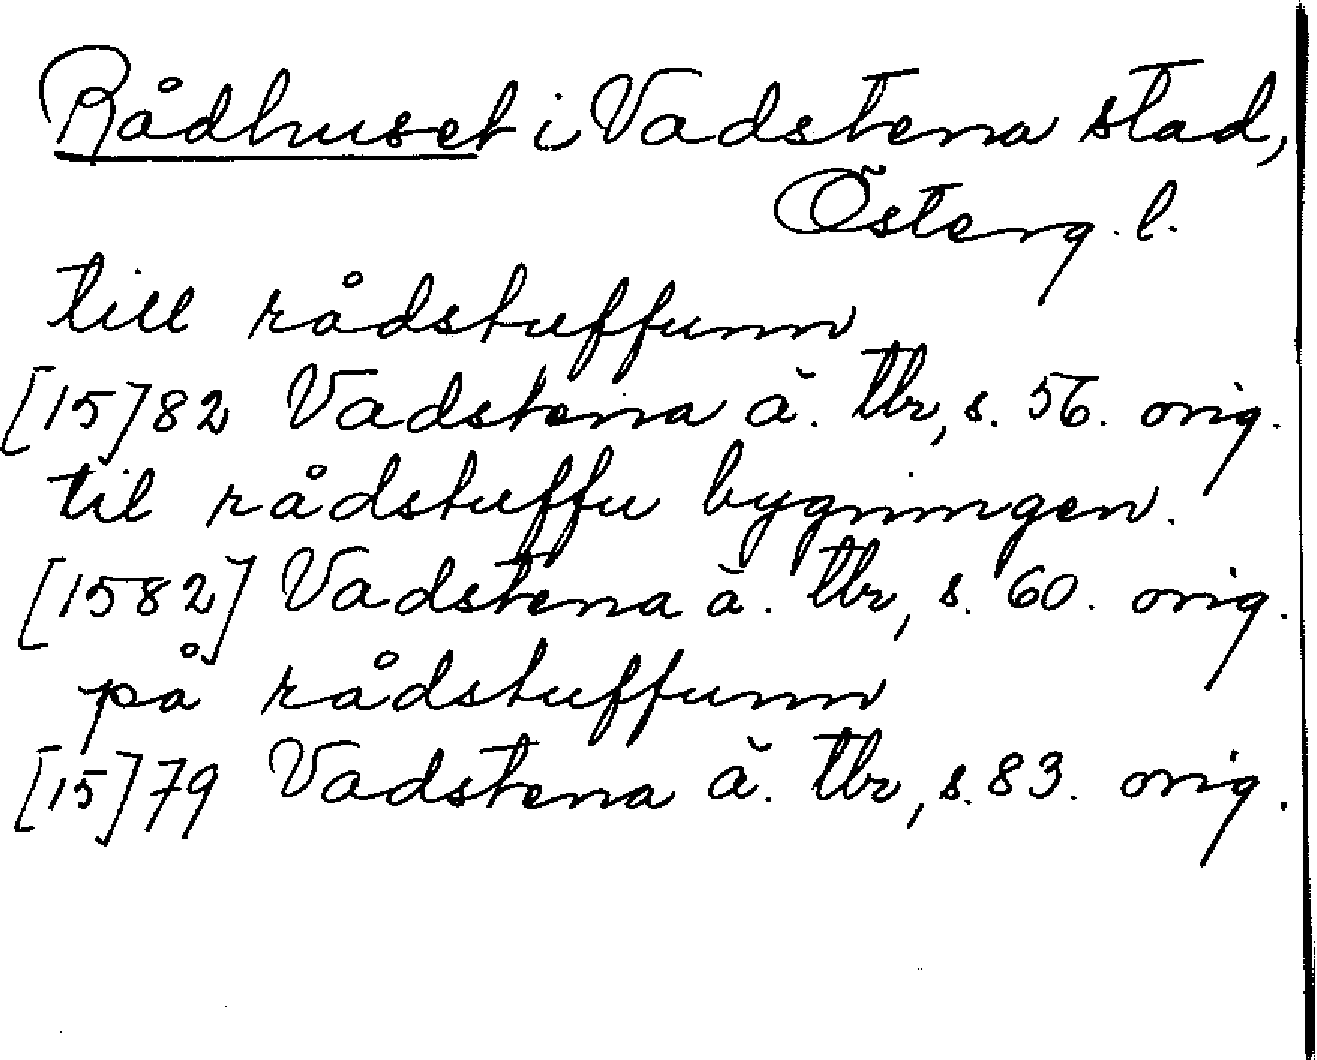 Rådhuset i Vadstena stad,
Österg. l.
till rådstuffunn
[15]82 Vadstena ä. tbr, s. 56. orig.
til rådstuffu bygningen.
[1582] Vadstena ä. tbr, s. 60. orig.
på rådstuffunn
[15]79 Vadstena ä. tbr, s. 83. orig.